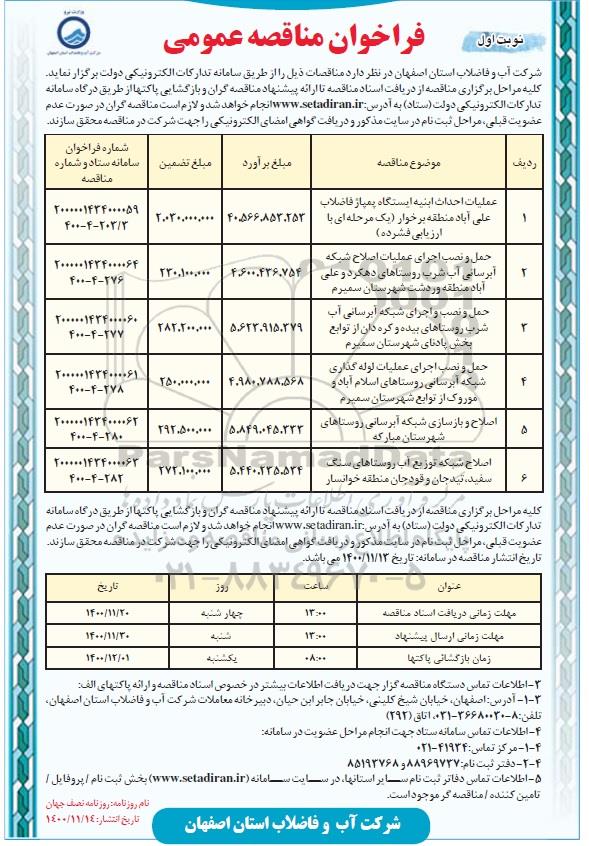 وزارت نیرو
شرکت آب و فاضلاب استان اصفهان
فراخوان مناقصه عمومی
نوبت اول
شرکت آب و فاضلاب استان اصفهان در نظر دارد مناقصات ذیل را از طریق سامانه تدارکات الکترونیکی دولت برگزار نماید.
کلیه مراحل برگزاری مناقصه از دریافت اسناد مناقصه تا ارائه پیشنهاد مناقصه گران و بازگشایی پاکتها از طریق درگاه سامانه
تدارکات الکترونیکی دولت (ستاد) به آدرس: www.setadiran.ir انجام خواهد شد و لازم است مناقصه گران در صورت عدم
عضویت قبلی، مراحل ثبت نام در سایت مذکور و دریافت گواهی امضای الکترونیکی را جهت شرکت در مناقصه محقق سازند.
ردیف موضوع مناقصه مبلغ برآورد مبلغ تضمین شماره فراخوان سامانه ستاد و شماره مناقصه
۱ عملیات احداث ابنیه ایستگاه پمپاژ فاضلاب علی آباد منطقه برخوار (یک مرحله ای با ارزیابی فشرده) ۴۰،۵۶۶،۸۵۳،۲۵۳ ۲،۰۳۰،۰۰۰،۰۰۰ ۲۰۰۰۰۰۱۴۳۴۰۰۰۰۵۹ ۴۰۰-۴-۲۰۳/۳
۲ حمل و نصب اجرای عملیات اصلاح شبکه آبرسانی آب شرب روستاهای دهکرد و علی آباد منطقه وردشت شهرستان سمیرم ۴،۶۰۰،۴۳۶،۷۵۴ ۲۳۰،۱۰۰،۰۰۰ ۲۰۰۰۰۰۱۴۳۴۰۰۰۰۶۴ ۴۰۰-۴-۲۷۶
۳ حمل و نصب و اجرای شبکه آبرسانی آب شرب روستاهای بیده و کره دان از توابع بخش پادنای شهرستان سمیرم ۵،۶۲۳،۹۱۵،۳۷۹ ۲۸۲،۲۰۰،۰۰۰ ۲۰۰۰۰۰۱۴۳۴۰۰۰۰۶۰ ۴۰۰-۴-۲۷۷
۴ حمل و نصب اجرای عملیات لوله گذاری شبکه آبرسانی روستاهای اسلام آباد و موروک از توابع شهرستان سمیرم ۴،۹۸۰،۷۸۸،۵۶۸ ۲۵۰،۰۰۰،۰۰۰ ۲۰۰۰۰۰۱۴۳۴۰۰۰۰۶۱ ۴۰۰-۴-۲۷۸
۵ اصلاح و بازسازی شبکه آبرسانی روستاهای شهرستان مبارکه ۵،۸۴۹،۰۴۵،۳۳۳ ۲۹۲،۵۰۰،۰۰۰ ۲۰۰۰۰۰۱۴۳۴۰۰۰۰۶۲ ۴۰۰-۴-۲۸۰
۶ اصلاح شبکه توزیع آب روستاهای سنگ سفید، تیدجان و قودجان منطقه خوانسار ۵،۴۴۰،۲۳۵،۵۲۴ ۲۷۲،۱۰۰،۰۰۰ ۲۰۰۰۰۰۱۴۳۴۰۰۰۰۶۳ ۴۰۰-۴-۲۸۲
کلیه مراحل برگزاری مناقصه از دریافت اسناد مناقصه تا ارائه پیشنهاد مناقصه گران و بازگشایی پاکتها از طریق درگاه سامانه
تدارکات الکترونیکی دولت (ستاد) به آدرس: www.setadiran.ir انجام خواهد شد و لازم است مناقصه گران در صورت عدم
عضویت قبلی، مراحل ثبت نام در سایت مذکور و دریافت گواهی امضای الکترونیکی را جهت شرکت در مناقصه محقق سازند.
تاریخ انتشار مناقصه در سامانه: تاریخ ۱۴۰۰/۱۱/۱۳ می باشد.
عنوان ساعت روز تاریخ
مهلت زمانی دریافت اسناد مناقصه ۱۳:۰۰ چهار شنبه ۱۴۰۰/۱۱/۲۰
مهلت زمانی ارسال پیشنهاد ۱۳:۰۰ شنبه ۱۴۰۰/۱۱/۳۰
زمان بازگشائی پاکتها ۰۸:۰۰ یکشنبه ۱۴۰۰/۱۲/۰۱
۳-اطلاعات تماس دستگاه مناقصه گزار جهت دریافت اطلاعات بیشتر در خصوص اسناد مناقصه و ارائه پاکتهای الف:
۱-۳- آدرس: اصفهان، خیابان شیخ کلینی، خیابان جابر ابن حیان، دبیرخانه معاملات شرکت آب و فاضلاب استان اصفهان،
تلفن: ۸-۳۶۶۸۰۰۳۰-۰۳۱، اتاق (۲۹۲)
۴-اطلاعات تماس سامانه ستاد جهت انجام مراحل عضویت در سامانه:
۱-۴- مرکز تماس: ۴۱۹۳۴-۰۲۱
۲-۴- دفتر ثبت نام: ۸۸۹۶۹۷۳۷ و ۸۵۱۹۳۷۶۸
۵-اطلاعات تماس دفاتر ثبت نام سایر استانها، در سایت سامانه (www.setadiran.ir) بخش ثبت نام / پروفایل /
تامین کننده / مناقصه گر موجود است.
نام روزنامه: روزنامه نصف جهان
تاریخ انتشار: ۱۴۰۰/۱۱/۱۴
شرکت آب و فاضلاب استان اصفهان
ParsNamadData
۰۲۱-۸۸۳۴۹۶۷۰-۵